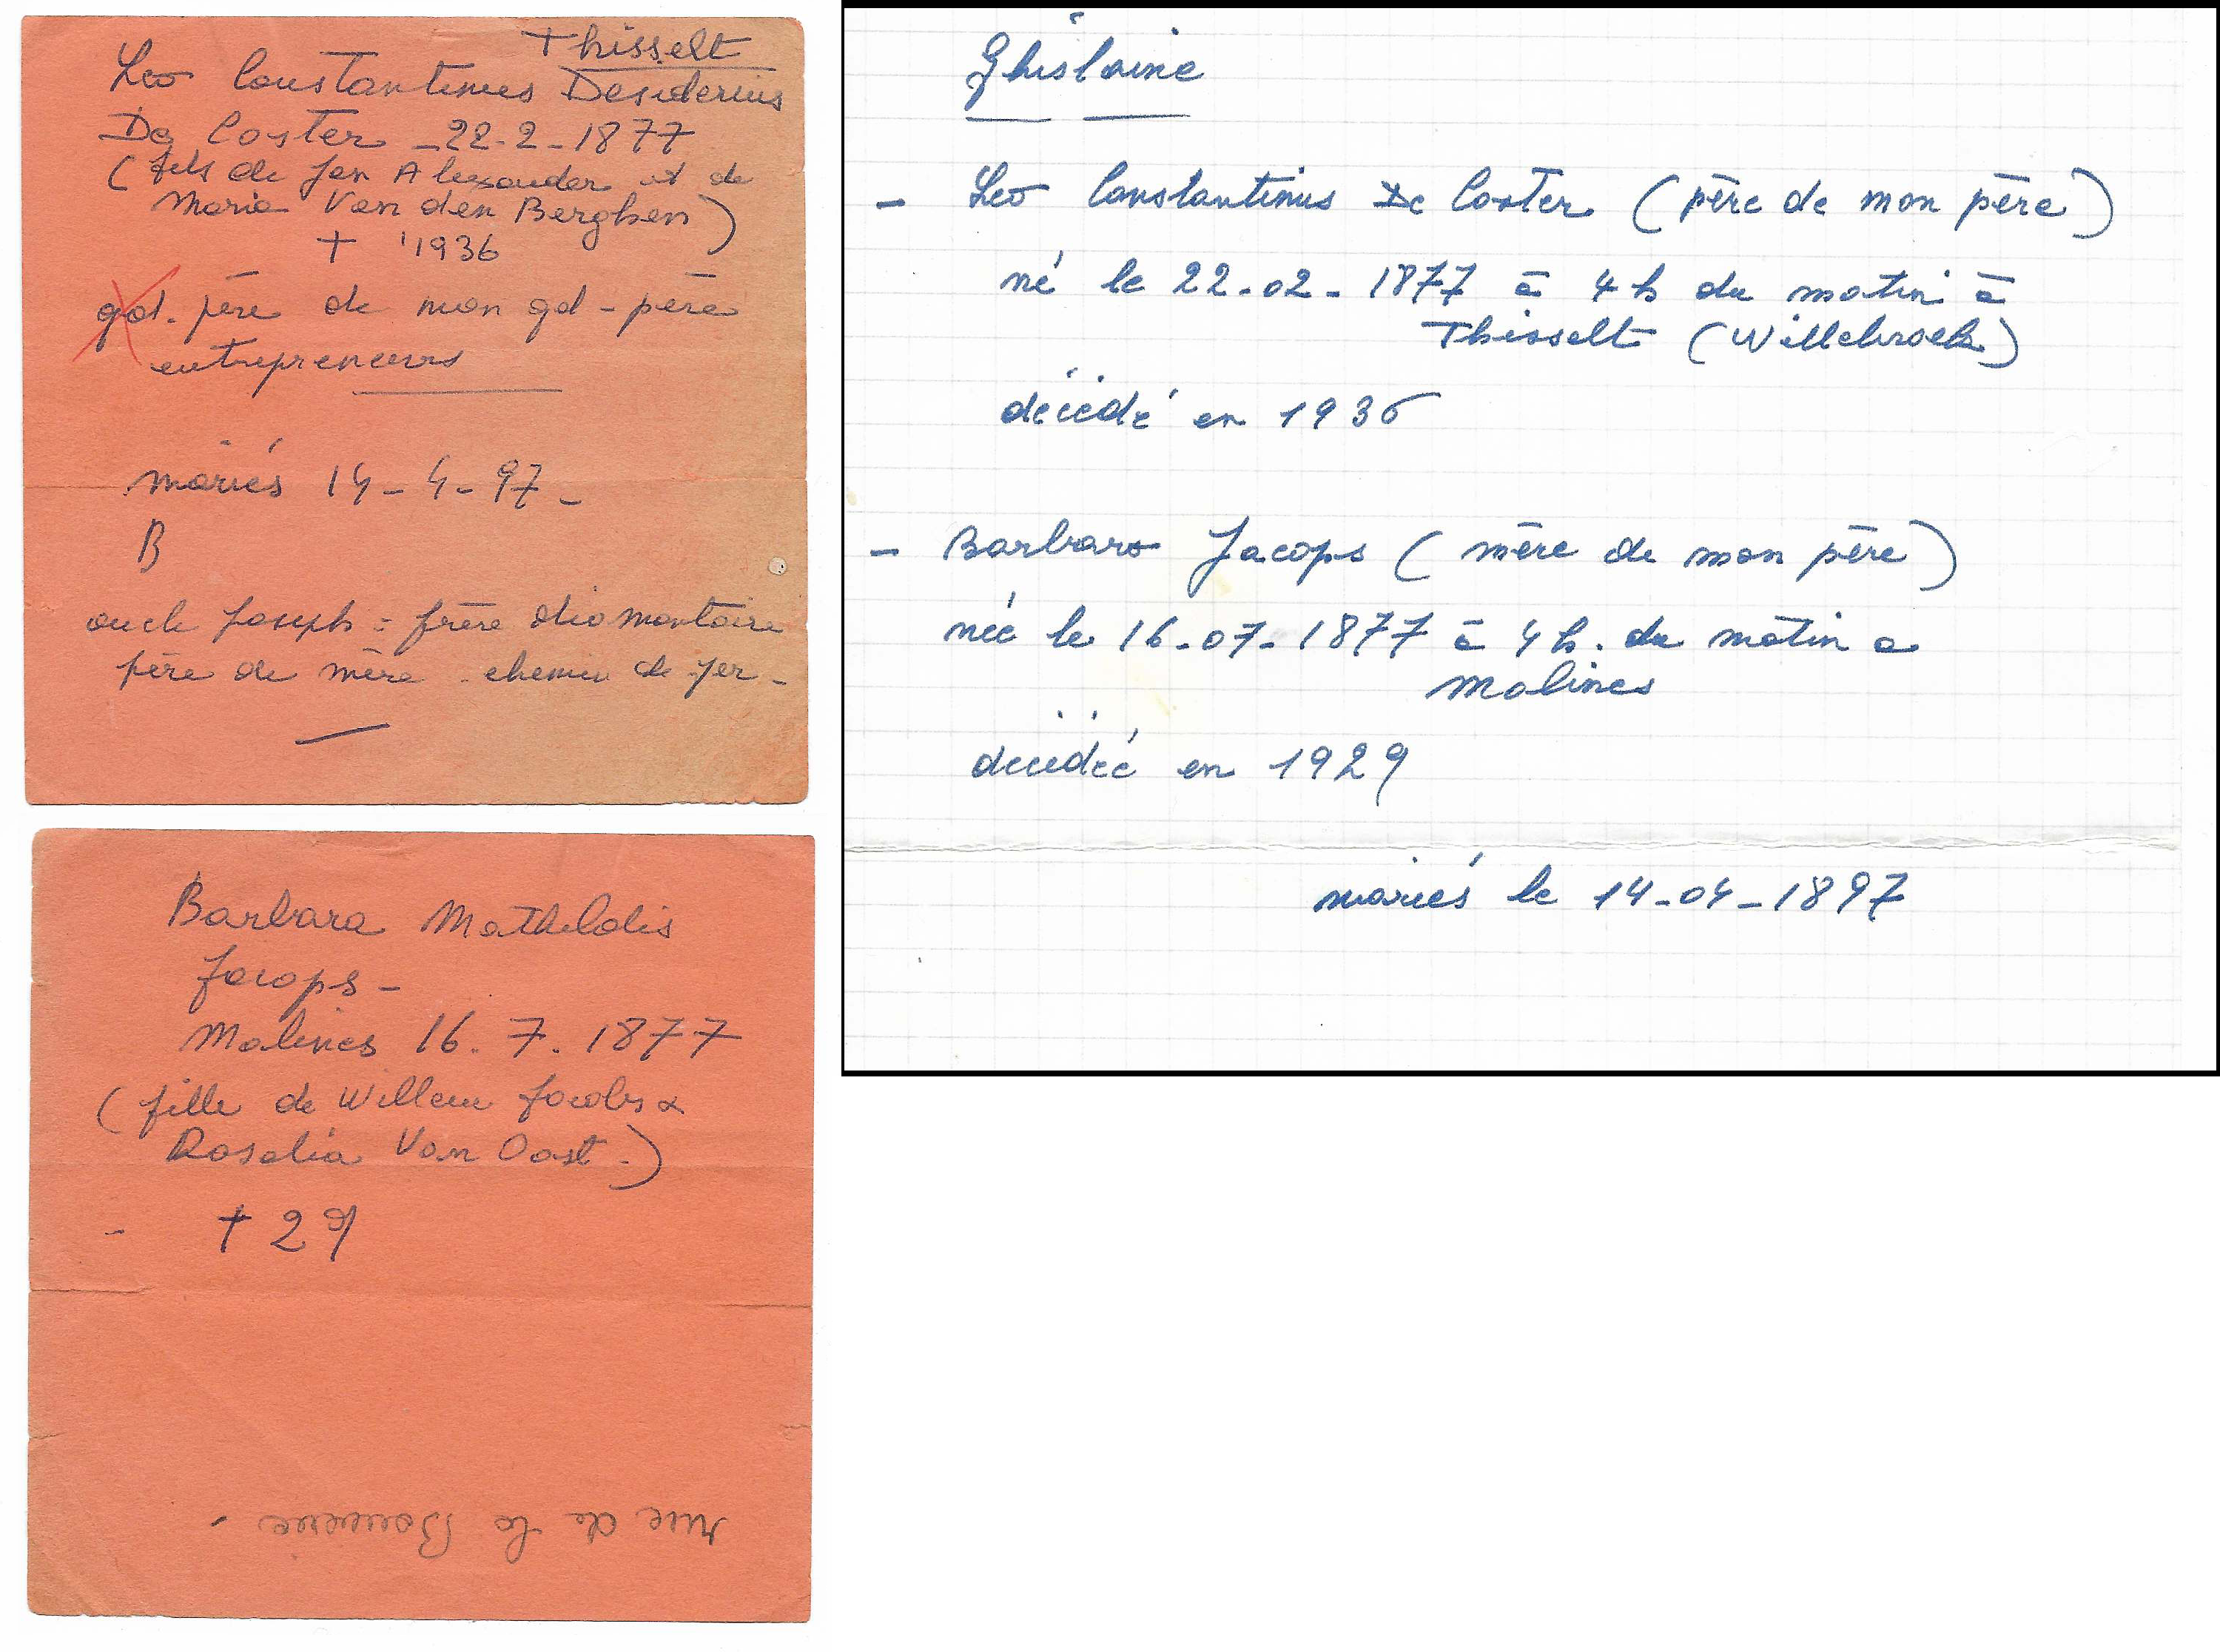 Thisselt
Leo Constantinus Desiderius
De Coster - 22-2-1877
(fils de Jan Alexander et de
Maria Van den Berghen)
† 1936
gd. père de mon gd-père
entrepreneurs
mariés 14-4-97-
B
oncle Joseph = frère diamantaire
père de mère - chemin de fer -
Barbara Mathildis
Jacops -
Malines 16. 7. 1877
(fille de Willem Jacobs &
Rosalia Van Oost.)
- † 29
rue de la -
Ghislaine
- Leo Constantinus De Coster (père de mon père)
né le 22-02-1877 à 4 h du matin à
Thisselt (Willebroek)
décédé en 1936
- Barbara Jacops (mère de mon père)
née le 16-07-1877 à 4 h. du matin a
Malines
décédée en 1929
mariés le 14-04-1897